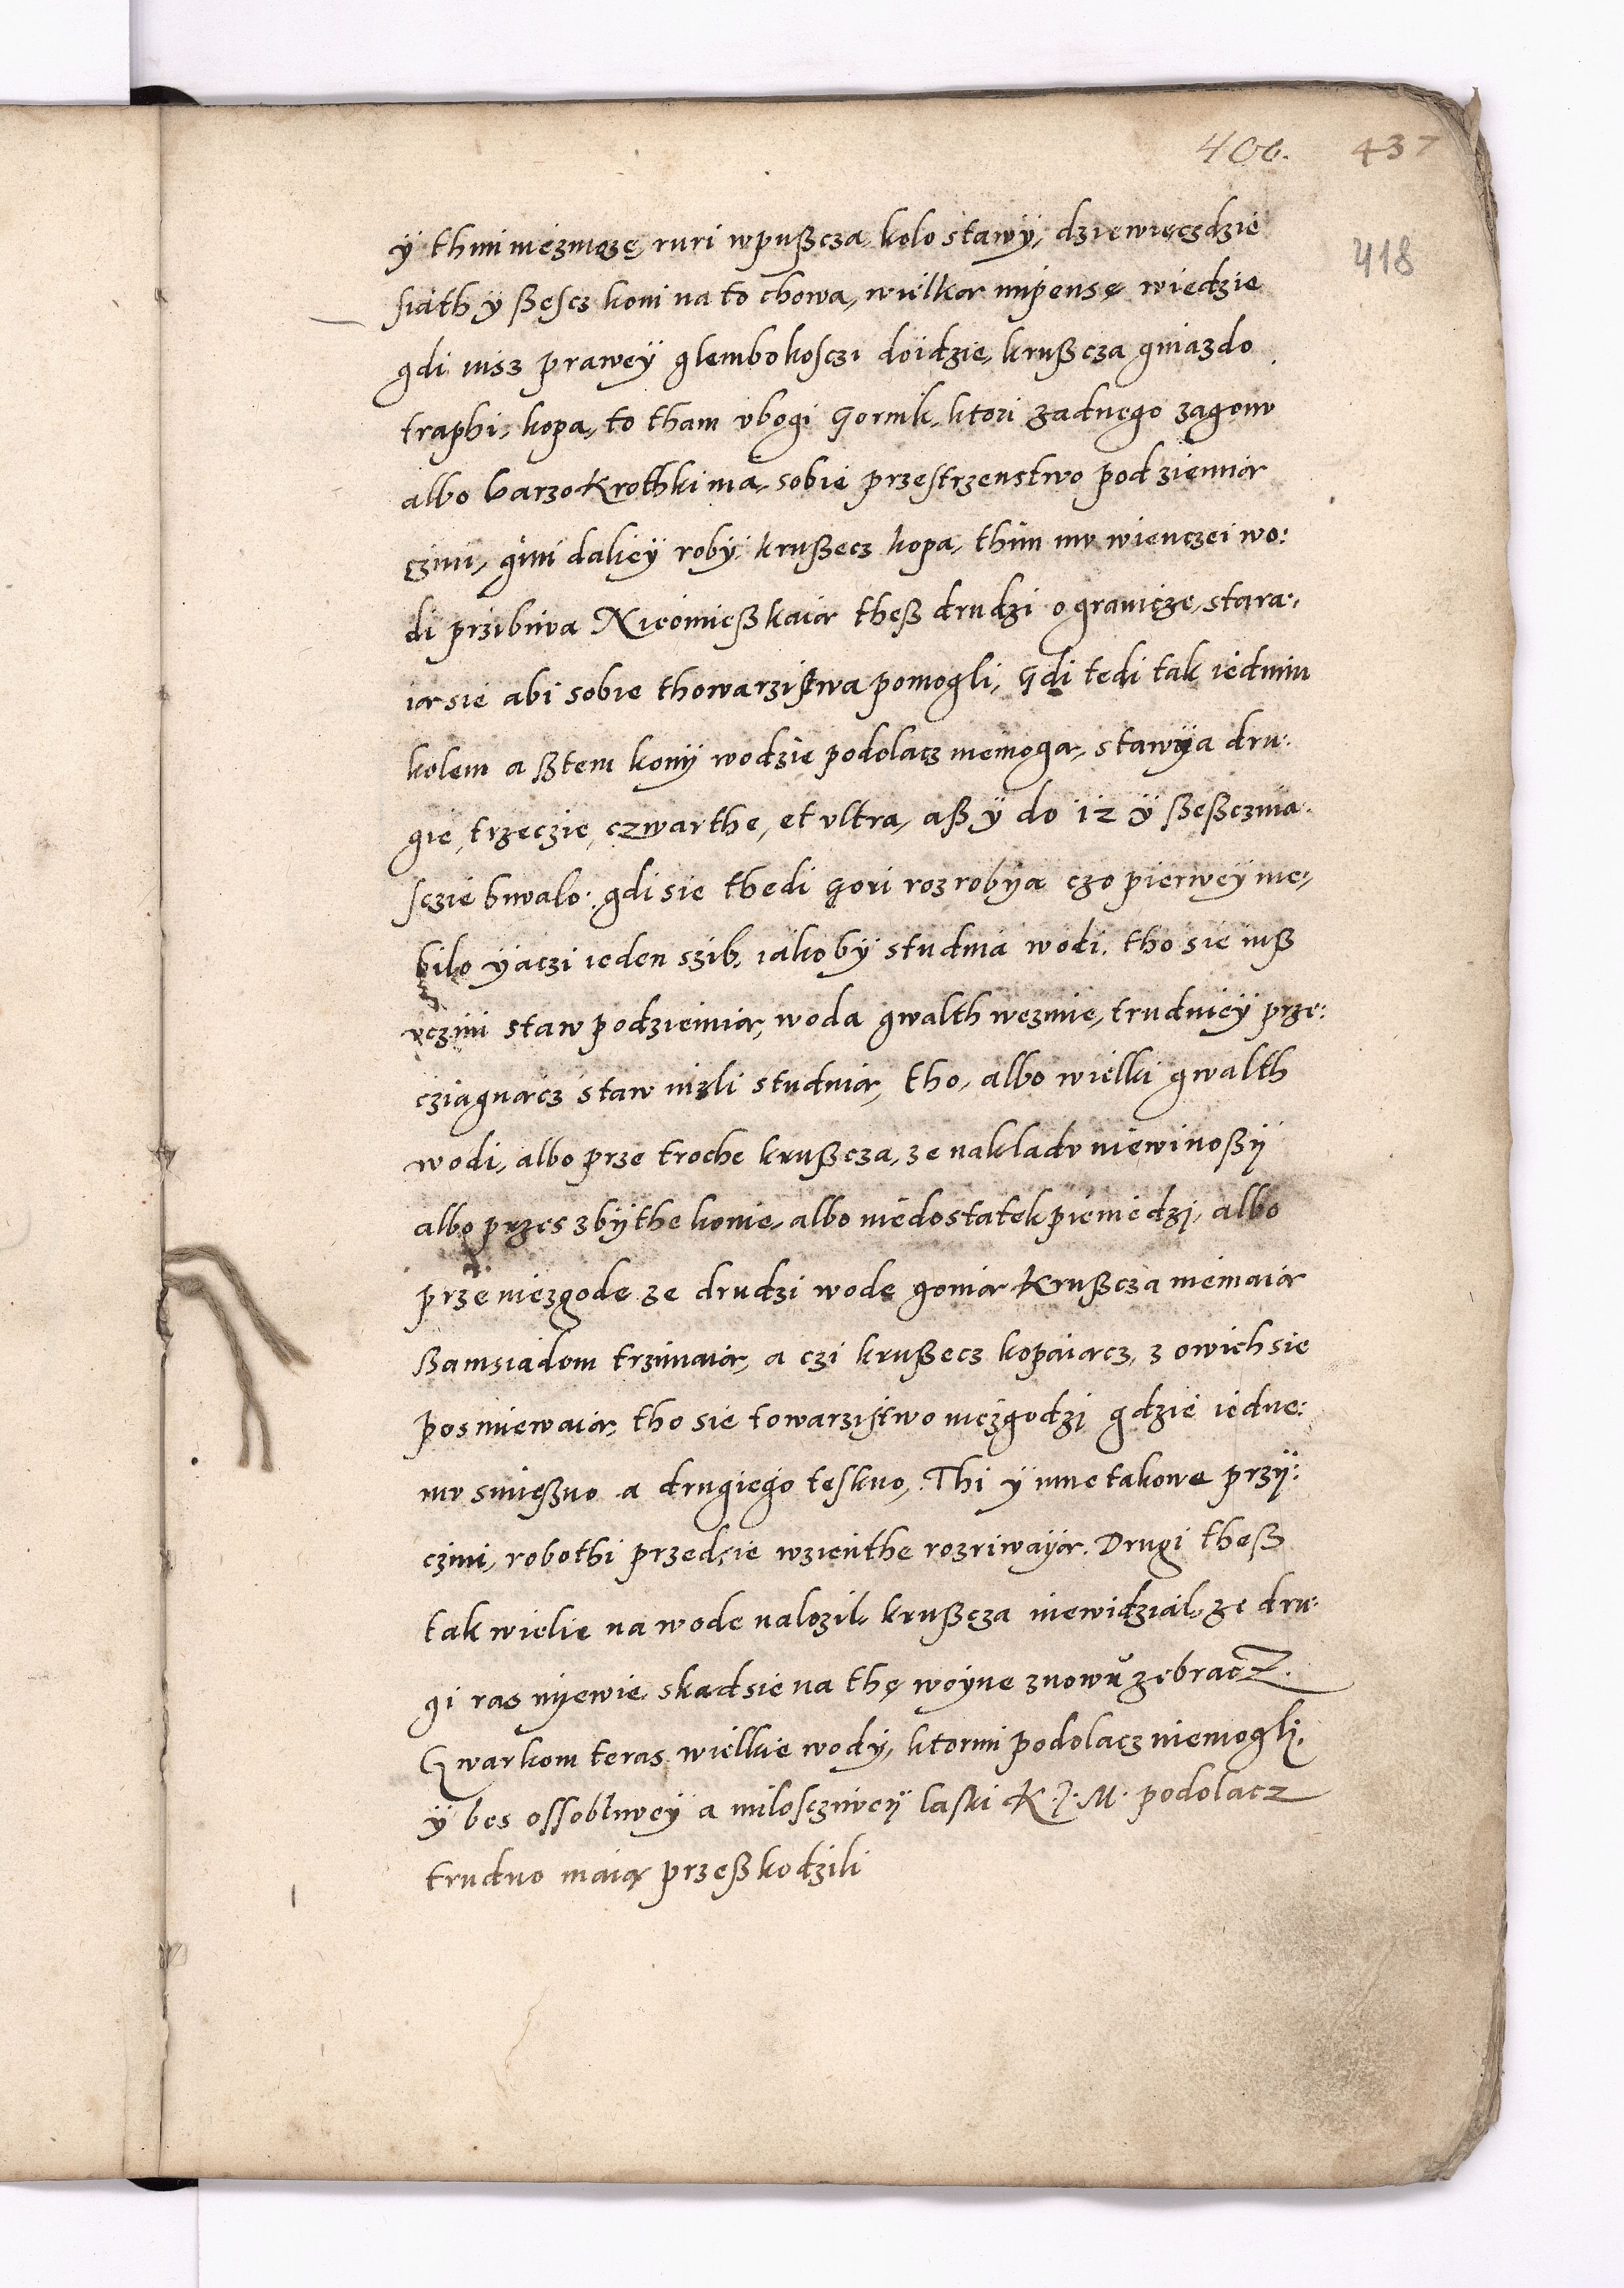 400. 437
418
ÿ thim niezmozę ruri wpußcza, kolo stawÿ, dziewięczdzie
siath ÿ ßescz koni na to chowa, wielkąr impensę wiedzie
gdi iusz praweÿ glembokosczi doidzie, krußcza gniazdo
traphi, kopa, to tham vbogi Gornik, ktori zadnego zagonu
albo barzo Krothki ma, sobie przestrzenstwo pod ziemiąr
czini, gimi daliey roby, krußecz kopa, thim mv wienczei wo:
di przibiwa Nieomießkaiąr theß drudzi o granicze, stara:
iąr sie abi sobie thowarzistwa pomogli, Gdi tedi tak iednim
kolem a ßtem konÿ wodzie podolacz niemogąr, stawÿa dru:
gie, trzeczie, czwarthe, et vltra, aß ÿ do 12 ÿ ßeßczina:
sczie biwalo: gdi sie thedi Gori rozrobÿa czo pierweÿ nie:
bilo ÿaczi ieden szib, iako bÿ studnia wodi, tho sie iuß
vczini staw podziemiąr, woda gwalth wezmie, trudnieÿ prze:
cziagnącz staw nizli studniąr, tho, albo wielki gwalth
wodi, albo prze troche krußcza, ze nakladv niewinoßÿ
albo przes zbÿthe konie, albo niedostatek pieniedzi, albo
prze niezgode ze drudzi wode goniąr Krußcza niemaiąr
ßamsiadom trzimaiąr, a czi krußecz kopaiącz, z owich sie
posmiewaiąr, tho sie towarzistwo niezgodzi gdzie iedne:
mv smießno a drugiego teskno, Thi ÿ inne takowe przÿ:
czini, robothi przedsie wzienthe rozriwaÿąr. Drugi theß
tak wielie na wode nalozil, krußcza niewidzial, ze dru:
gi ras nÿewie skądsie na thę woÿne znowŭ zebracz.
Gwarkom teras wielkie wodÿ, ktormi podolacz niemogli,
ÿ bes ossobliweÿ a milosciweÿ laski K. J. M. podolacz
trudno maiąr przeßkodzili